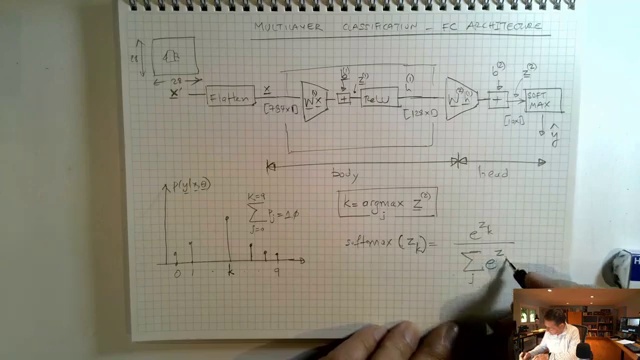 MULTILAYER CLASSIFICATION - FC ARCHITECTURE
28
28
X' Flatten x [784x1] W⁽¹⁾x b⁽¹⁾ + z⁽¹⁾ ReLU h⁽¹⁾ [128x1] W⁽²⁾h⁽¹⁾ b⁽²⁾ + z⁽²⁾ [10x1] SOFT MAX ŷ
body head
P(y|x,θ)
K=9 ∑ j=0 Pj=1.0
0 1 k 9
k = argmax j z⁽²⁾
softmax (z_k) = e^{z_k} / ∑_j e^z